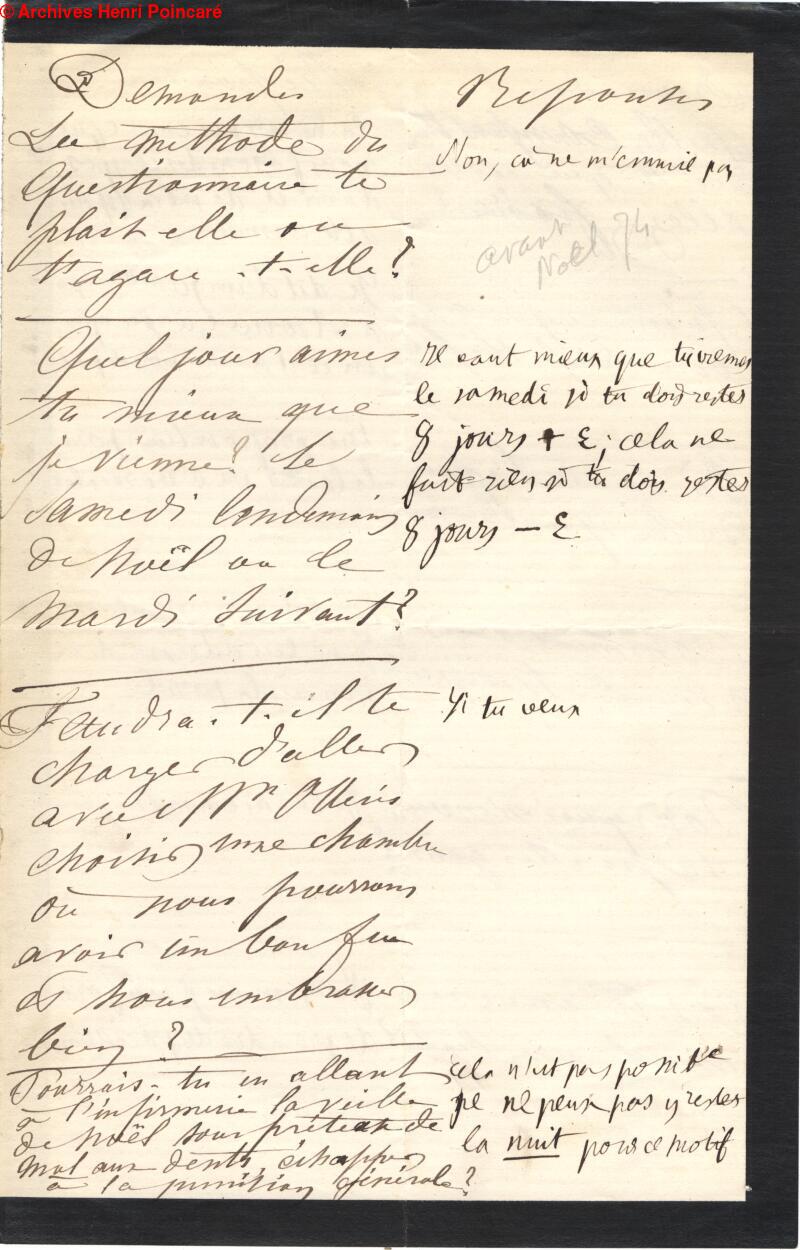 © Archives Henri Poincaré
Demandes
Réponses
La methode du
Questionnaire te
plait elle ou
t'agace-t-elle?
Non, cà ne m'ennuie pas
avant
Noël 74
Quel jour aimes
tu mieux que
je vienne? Le
Samedi lendemain
de Noël ou le
mardi suivant?
vaut mieux que tu viennes
le samedi si tu dois rester
8 jours + ε; cela ne
fait rien si tu dois rester
8 jours – ε
Faudra-t-il te
charger d'aller
avec Mr
choisir une chambre
où nous pourrons
avoir un bon feu
et nous embrasser
bien?
Si tu veux
Pourrais-tu en allant
à l'infirmerie la veille
de Noël sous prétexte de
mal aux dents, échapper
à la punition générale?
cela n'est pas possible
je ne peux pas y rester
la nuit pour ce motif